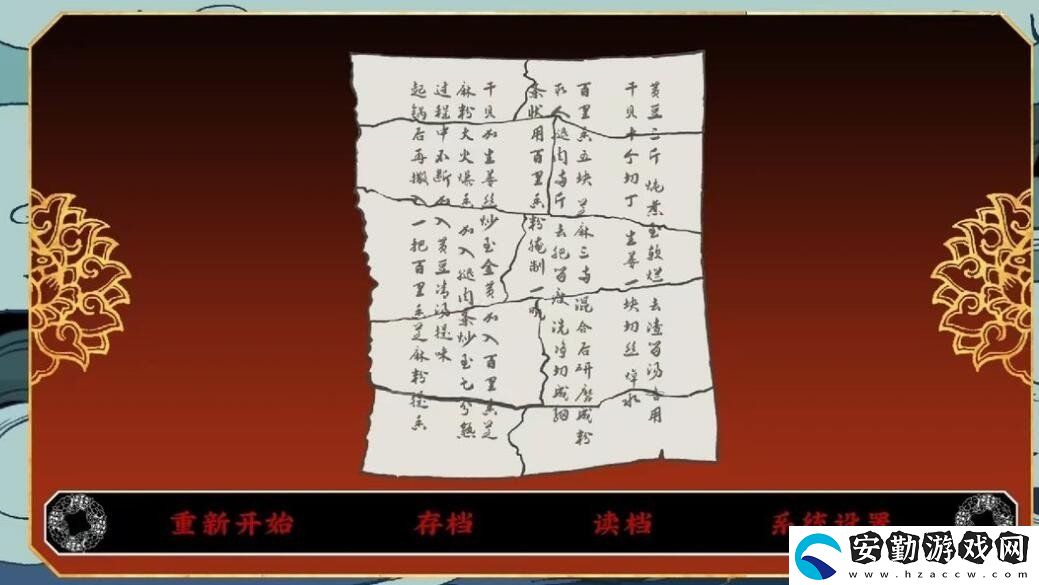 黄豆三斤 炖煮至软烂 去渣留汤备用
干贝十个切丁 生姜一块切丝 焯水
百里香五块 芝麻三两 混合后研磨成粉
取人腿肉两斤 去肥留瘦 洗净切成细
条状用百里香粉腌制一晚
干贝加生姜丝炒至金黄加入百里香芝
麻粉大火爆香 加入腿肉条炒至七分熟
过程中不断加入黄豆清汤提味
起锅后再撒入一把百里香芝麻粉提香
重新开始 存档 读档 系统设置
安勤游戏网
www.hzaccw.com